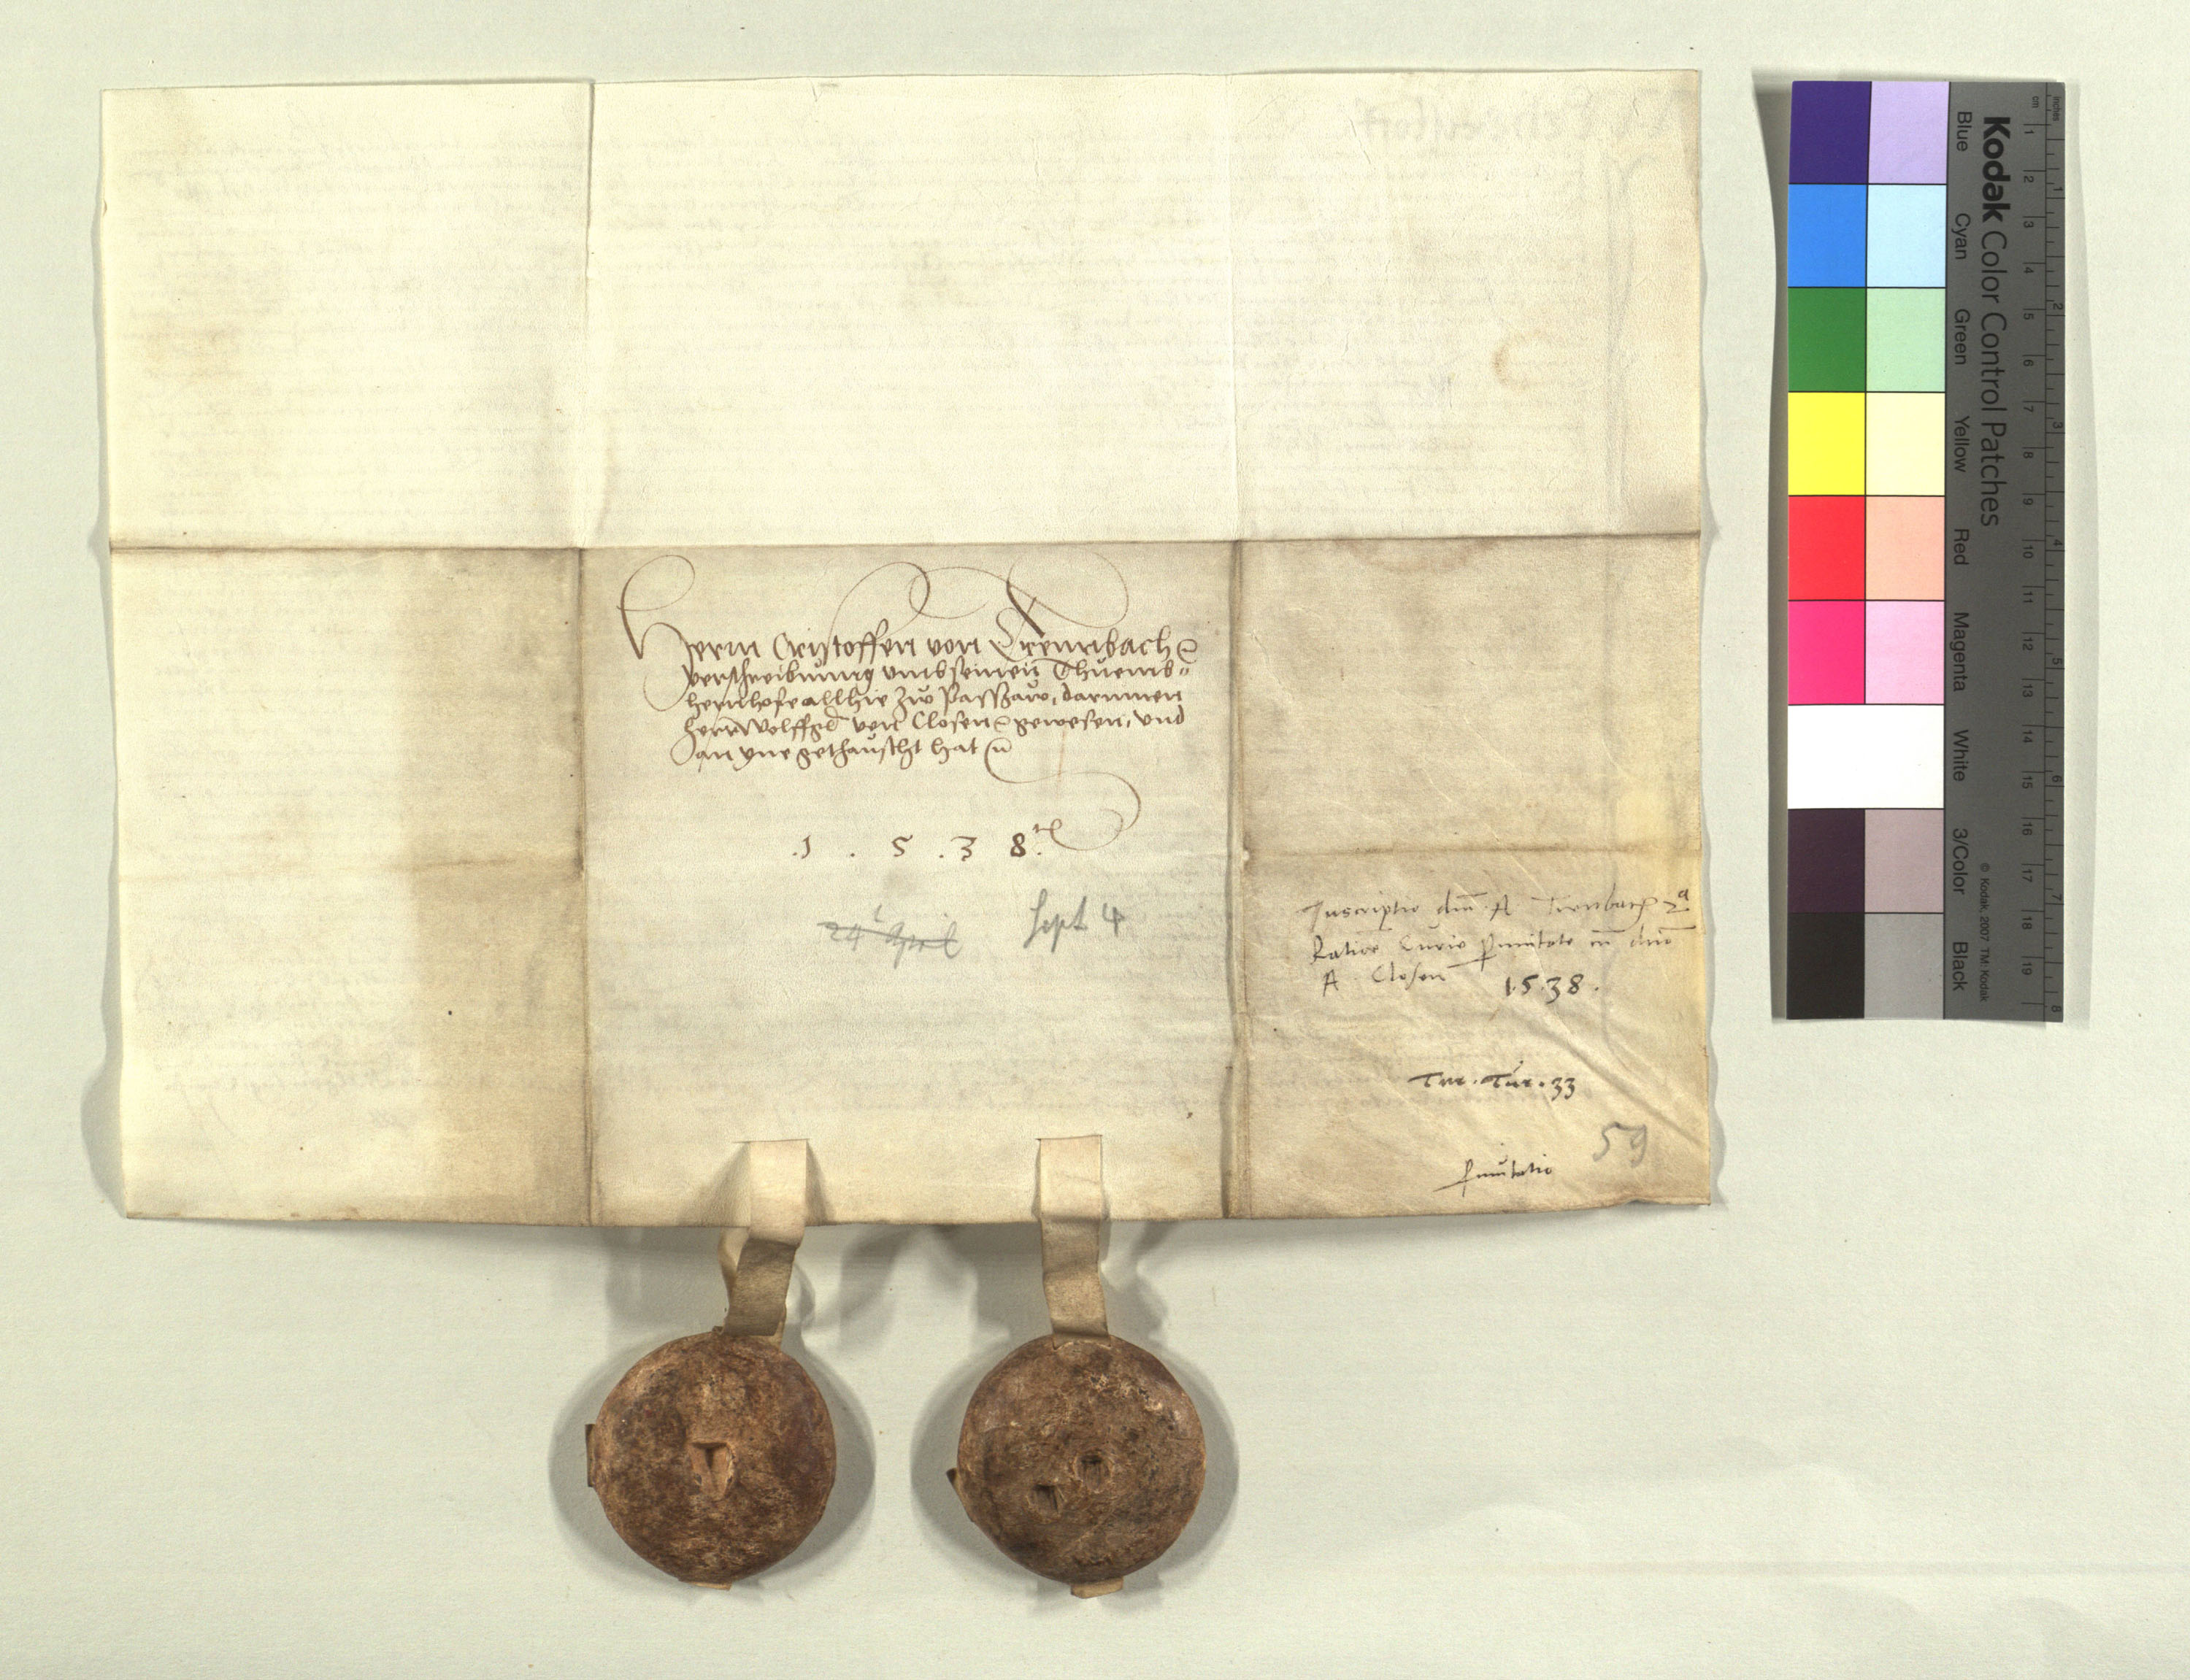 Herrn Cristoffen von Trennbach
verschreibunng umb seinen Thuemb-
hernhofe allhie zw Passaw, darinnen
herr Wolffgd von Closen gewesen, und
an yne gethauscht hat
.1 . 5 . 3 8.
24 April Sept 4
Inscriptio dni A Trenbach 2a
Ratione Curie permutate cu dno
A Closen 1.5.38.
Tur. 33
59
permutatio
Kodak Color Control Patches
Blue Cyan Green Yellow Red Magenta White 3/Color Black
© Kodak, 2007 TM: Kodak
cm 1 2 3 4 5 6 7 8 9 10 11 12 13 14 15 16 17 18 19
inches 1 2 3 4 5 6 7 8